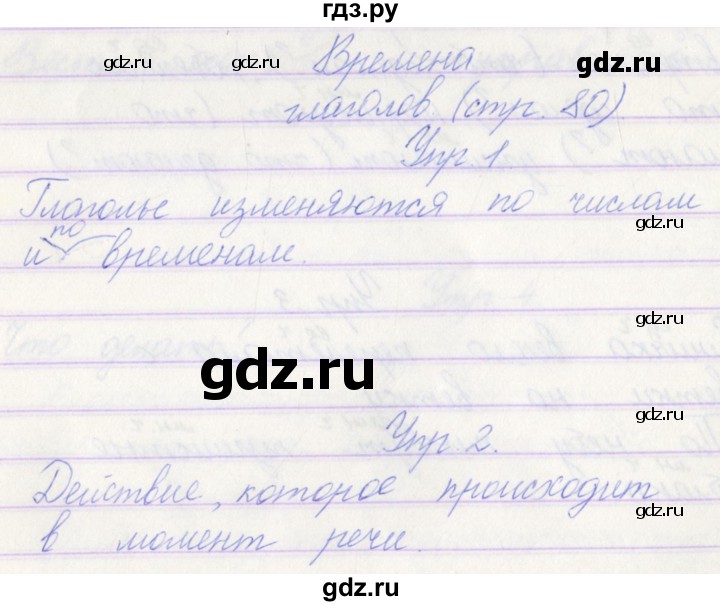 гдз.ру
gdz.ru gdz.ru gdz.ru
Времена
глаголов (стр. 80)
Упр. 1
gdz.ru
Глаголы изменяются по числам
gdz.ru
по
и временам.
gdz.ru
gdz.ru
gdz.ru
Упр. 2.
Действие, которое происходит
gdz.ru
в момент речи.
gdz.ru